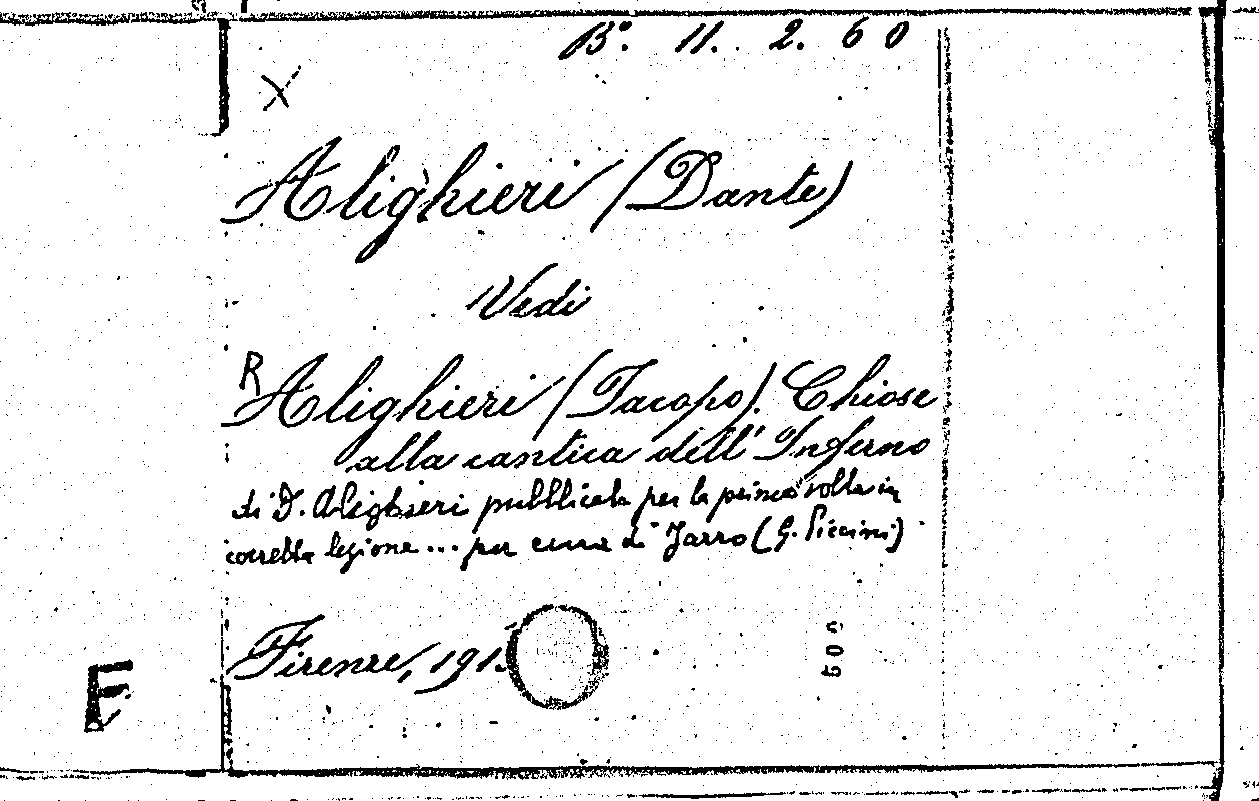 Bº. 11. 2. 60
X
Alighieri (Dante)
Vedi
R
Alighieri (Jacopo). Chiose
alla cantica dell' Inferno
di D. Alighieri pubblicate per la prima volta in
corretta lezione ... per cura di Jarro (G. Piccini)
Firenze, 191
E